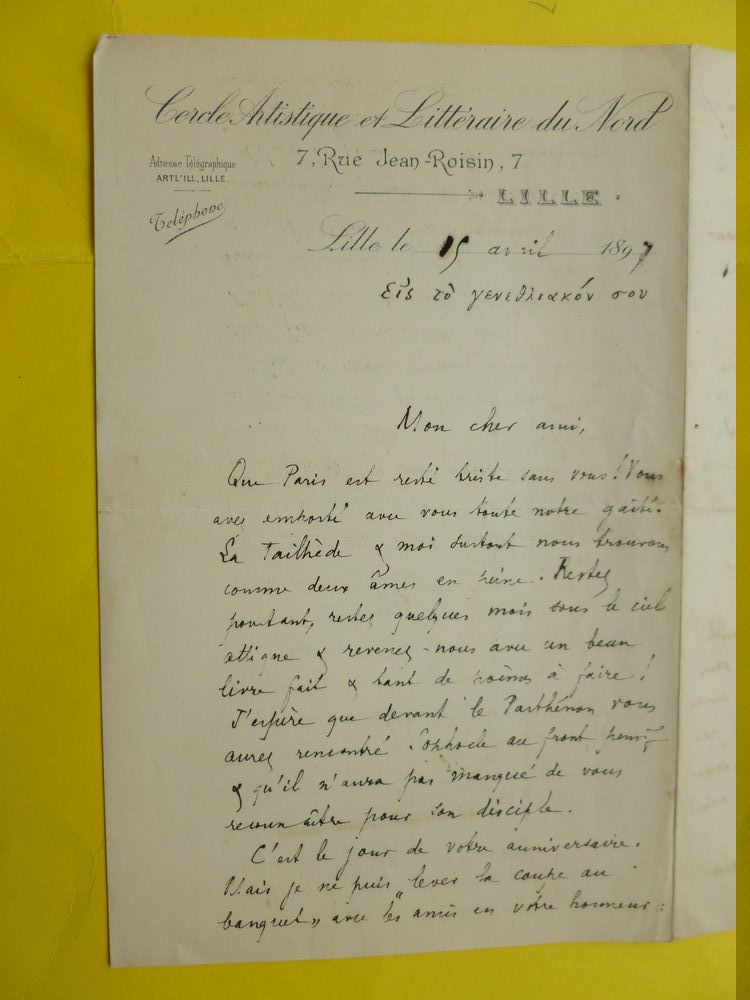 Cercle Artistique et Littéraire du Nord
7, Rue Jean-Roisin, 7
Adresse Télégraphique
ARTL'ILL, LILLE.
LILLE.
Téléphone
Lille le 15 avril 1897
Εἰς τὸ γενεθλιακόν σου
Mon cher ami,
Que Paris est resté triste sans vous! Vous
avez emporté avec vous toute notre gaîté.
La Tailhède & moi surtout nous trouvons
comme deux âmes en peine. Restez
pourtant, restez quelques mois sous le ciel
attique & revenez-nous avec un beau
livre fait & tant de poèmes à faire!
J'espère que devant le Parthénon vous
aurez rencontré Sophocle au front
& qu'il n'aura pas manqué de vous
reconnaître pour son disciple.
C'est le jour de votre anniversaire.
Mais je ne puis "lever la coupe au
banquet" avec les amis en votre honneur: